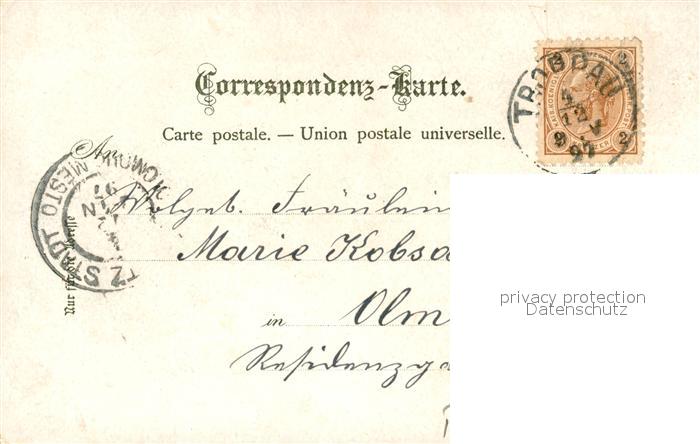 Correspondenz-Karte.
Carte postale. — Union postale universelle.
An
Wolgeb. Fräulein
Marie Kobsa
in Olm
Residenzg
Nur für die Adresse
TZ STADT
MESTO
97
2 2
97
privacy protection
Datenschutz